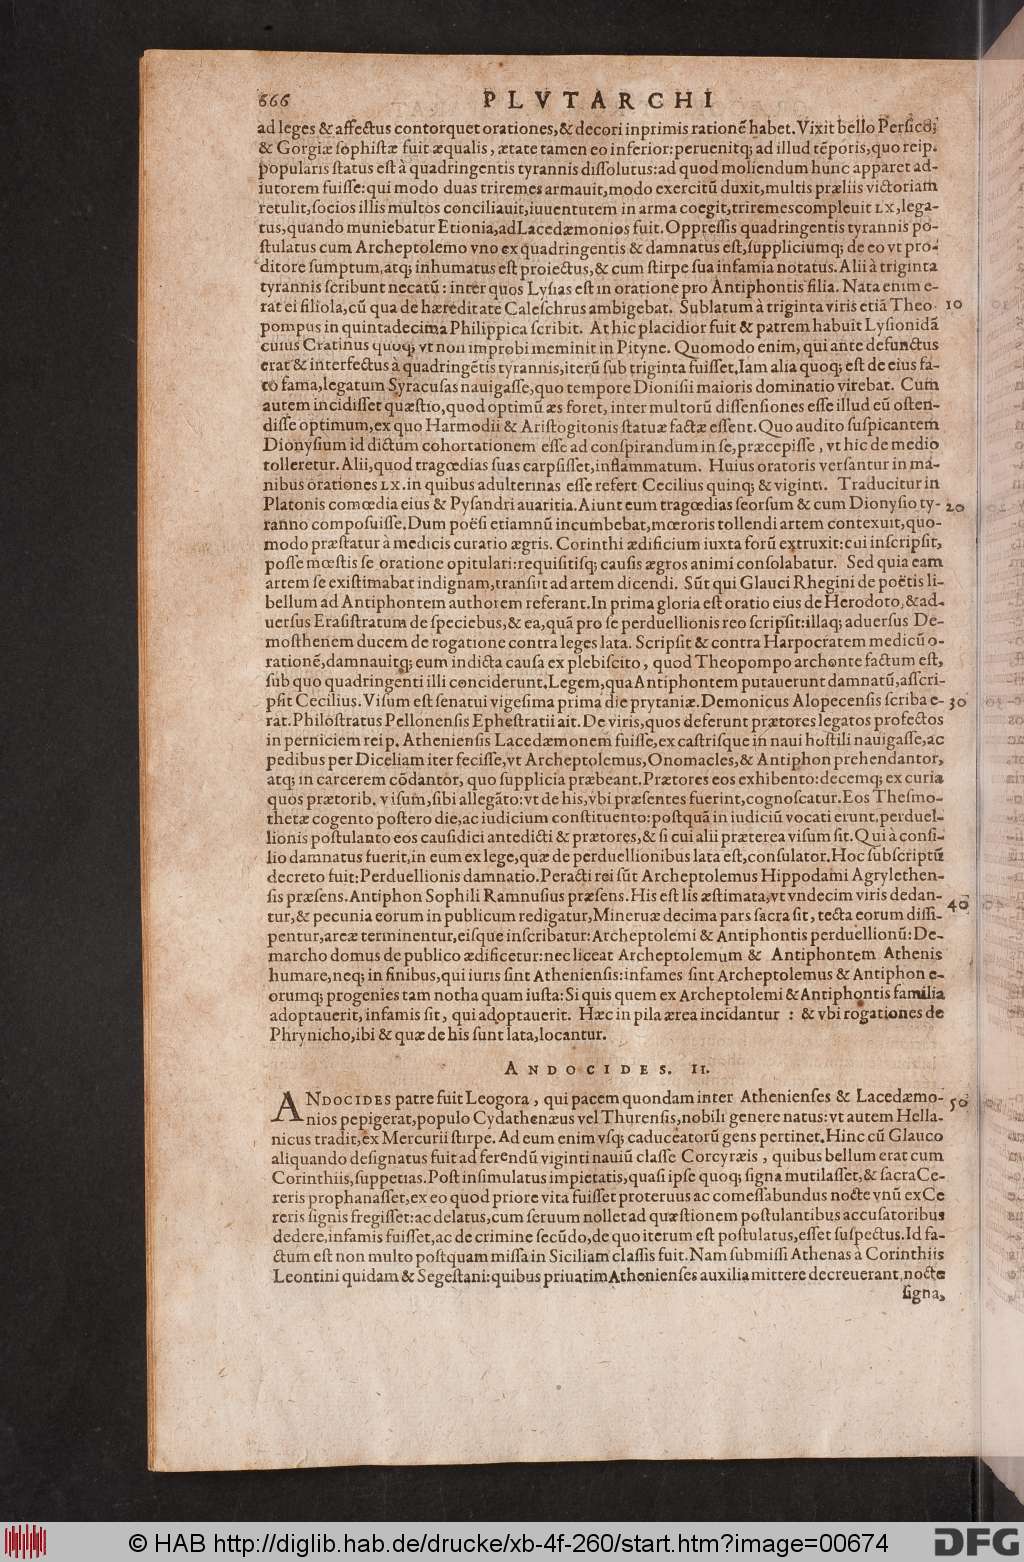 666 PLVTARCHI
ad leges & affectus contorquet orationes,& decori inprimis rationẽ habet. Vixit bello Persico;
& Gorgiæ sophistæ fuit æqualis, ætate tamen eo inferior: peruenitq; ad illud tẽporis, quo reip.
popularis status est à quadringentis tyrannis dissolutus: ad quod moliendum hunc apparet ad-
iutorem fuisse: qui modo duas triremes armauit, modo exercitũ duxit, multis præliis victoriam
retulit, socios illis multos conciliauit, iuuentutem in arma coegit, triremes compleuit LX, lega-
tus, quando muniebatur Etionia, ad Lacedæmonios fuit. Oppressis quadringentis tyrannis po-
stulatus cum Archeptolemo vno ex quadringentis & damnatus est, suppliciumq; de eo vt pro-
ditore sumptum, atq; inhumatus est proiectus, & cum stirpe sua infamia notatus. Alii à triginta
tyrannis scribunt necatũ: inter quos Lysias est in oratione pro Antiphontis filia. Nata enim e-
rat ei filiola, cũ qua de hæreditate Caleschrus ambigebat. Sublatum à triginta viris etiã Theo- 10
pompus in quintadecima Philippica scribit. At hic placidior fuit & patrem habuit Lysionidã
cuius Cratinus quoq; vt non improbi meminit in Pityne. Quomodo enim, qui ante defunctus
erat & interfectus à quadringẽtis tyrannis, iterũ sub triginta fuisset. Iam alia quoq; est de eius fa-
to fama, legatum Syracusas nauigasse, quo tempore Dionisii maioris dominatio virebat. Cum
autem incidisset quæstio, quod optimũ æs foret, inter multorũ dissensiones esse illud eũ osten-
disse optimum, ex quo Harmodii & Aristogitonis statuæ factæ essent. Quo audito suspicantem
Dionysium id dictum cohortationem esse ad conspirandum in se, præcepisse, vt hic de medio
tolleretur. Alii, quod tragœdias suas carpsisset, inflammatum. Huius oratoris versantur in ma-
nibus orationes LX. in quibus adulterinas esse refert Cecilius quinq; & viginti. Traducitur in
Platonis comœdia eius & Pysandri auaritia. Aiunt eum tragœdias seorsum & cum Dionysio ty- 20
ranno composuisse. Dum poësi etiamnũ incumbebat, mœroris tollendi artem contexuit, quo-
modo præstatur à medicis curatio ægris. Corinthi ædificium iuxta forũ extruxit: cui inscripsit,
posse mœstis se oratione opitulari: requisitisq; causis ægros animi consolabatur. Sed quia eam
artem se existimabat indignam, transiit ad artem dicendi. Sũt qui Glauci Rhegini de poëtis li-
bellum ad Antiphontem authorem referant. In prima gloria est oratio eius de Herodoto, & ad-
uersus Erasistratum de speciebus, & ea, quã pro se perduellionis reo scripsit: illaq; aduersus De-
mosthenem ducem de rogatione contra leges lata. Scripsit & contra Harpocratem medicũ o-
rationẽ, damnauitq; eum indicta causa ex plebiscito, quod Theopompo archonte factum est,
sub quo quadringenti illi conciderunt. Legem, qua Antiphontem putauerunt damnatũ, asscri-
psit Cecilius. Visum est senatui vigesima prima die prytaniæ. Demonicus Alopecensis scriba e- 30
rat. Philostratus Pellonensis Ephestratii ait. De viris, quos deferunt prætores legatos profectos
in perniciem reip. Atheniensis Lacedæmonem fuisse, ex castrisque in naui hostili nauigasse, ac
pedibus per Diceliam iter fecisse, vt Archeptolemus, Onomacles, & Antiphon prehendantor,
atq; in carcerem cõdantor, quo supplicia præbeant. Prætores eos exhibento: decemq; ex curia
quos prætorib. visum, sibi allegãto: vt de his, vbi præsentes fuerint, cognoscatur. Eos Thesmo-
thetæ cogento postero die, ac iudicium constituento: postquã in iudiciũ vocati erunt, perduel-
lionis postulanto eos causidici antedicti & prætores, & si cui alii præterea visum sit. Qui à consi-
lio damnatus fuerit, in eum ex lege, quæ de perduellionibus lata est, consulator. Hoc subscriptũ
decreto fuit: Perduellionis damnatio. Peracti rei sũt Archeptolemus Hippodami Agrylethen-
sis præsens. Antiphon Sophili Ramnusius præsens. His est lis æstimata, vt vndecim viris dedan-
tur, & pecunia eorum in publicum redigatur, Mineruæ decima pars sacra sit, tecta eorum dissi- 40
pentur, areæ terminentur, eisque inscribatur: Archeptolemi & Antiphontis perduellionũ: De-
marcho domus de publico ædificetur: nec liceat Archeptolemum & Antiphontem Athenis
humare, neq; in finibus, qui iuris sint Atheniensis: infames sint Archeptolemus & Antiphon e-
orumq; progenies tam notha quam iusta: Si quis quem ex Archeptolemi & Antiphontis familia
adoptauerit, infamis sit, qui adoptauerit. Hæc in pila ærea incidantur : & vbi rogationes de
Phrynicho, ibi & quæ de his sunt lata, locantur.
ANDOCIDES. II.
ANDOCIDES patre fuit Leogora, qui pacem quondam inter Athenienses & Lacedæmo- 50
nios pepigerat, populo Cydathenæus vel Thurensis, nobili genere natus: vt autem Hella-
nicus tradit, ex Mercurii stirpe. Ad eum enim vsq; caduceatorũ gens pertinet. Hinc cũ Glauco
aliquando designatus fuit ad ferendũ viginti nauiũ classe Corcyræis, quibus bellum erat cum
Corinthiis, suppetias. Post insimulatus impietatis, quasi ipse quoq; signa mutilasset, & sacra Ce-
reris prophanasset, ex eo quod priore vita fuisset proteruus ac comessabundus nocte vnũ ex Ce
reris signis fregisset: ac delatus, cum seruum nollet ad quæstionem postulantibus accusatoribus
dedere, infamis fuisset, ac de crimine secũdo, de quo iterum est postulatus, esset suspectus. Id fa-
ctum est non multo postquam missa in Siciliam classis fuit. Nam submissi Athenas à Corinthiis
Leontini quidam & Segestani: quibus priuatim Athenienses auxilia mittere decreuerant, nocte
signa,
© HAB http://diglib.hab.de/drucke/xb-4f-260/start.htm?image=00674 DFG